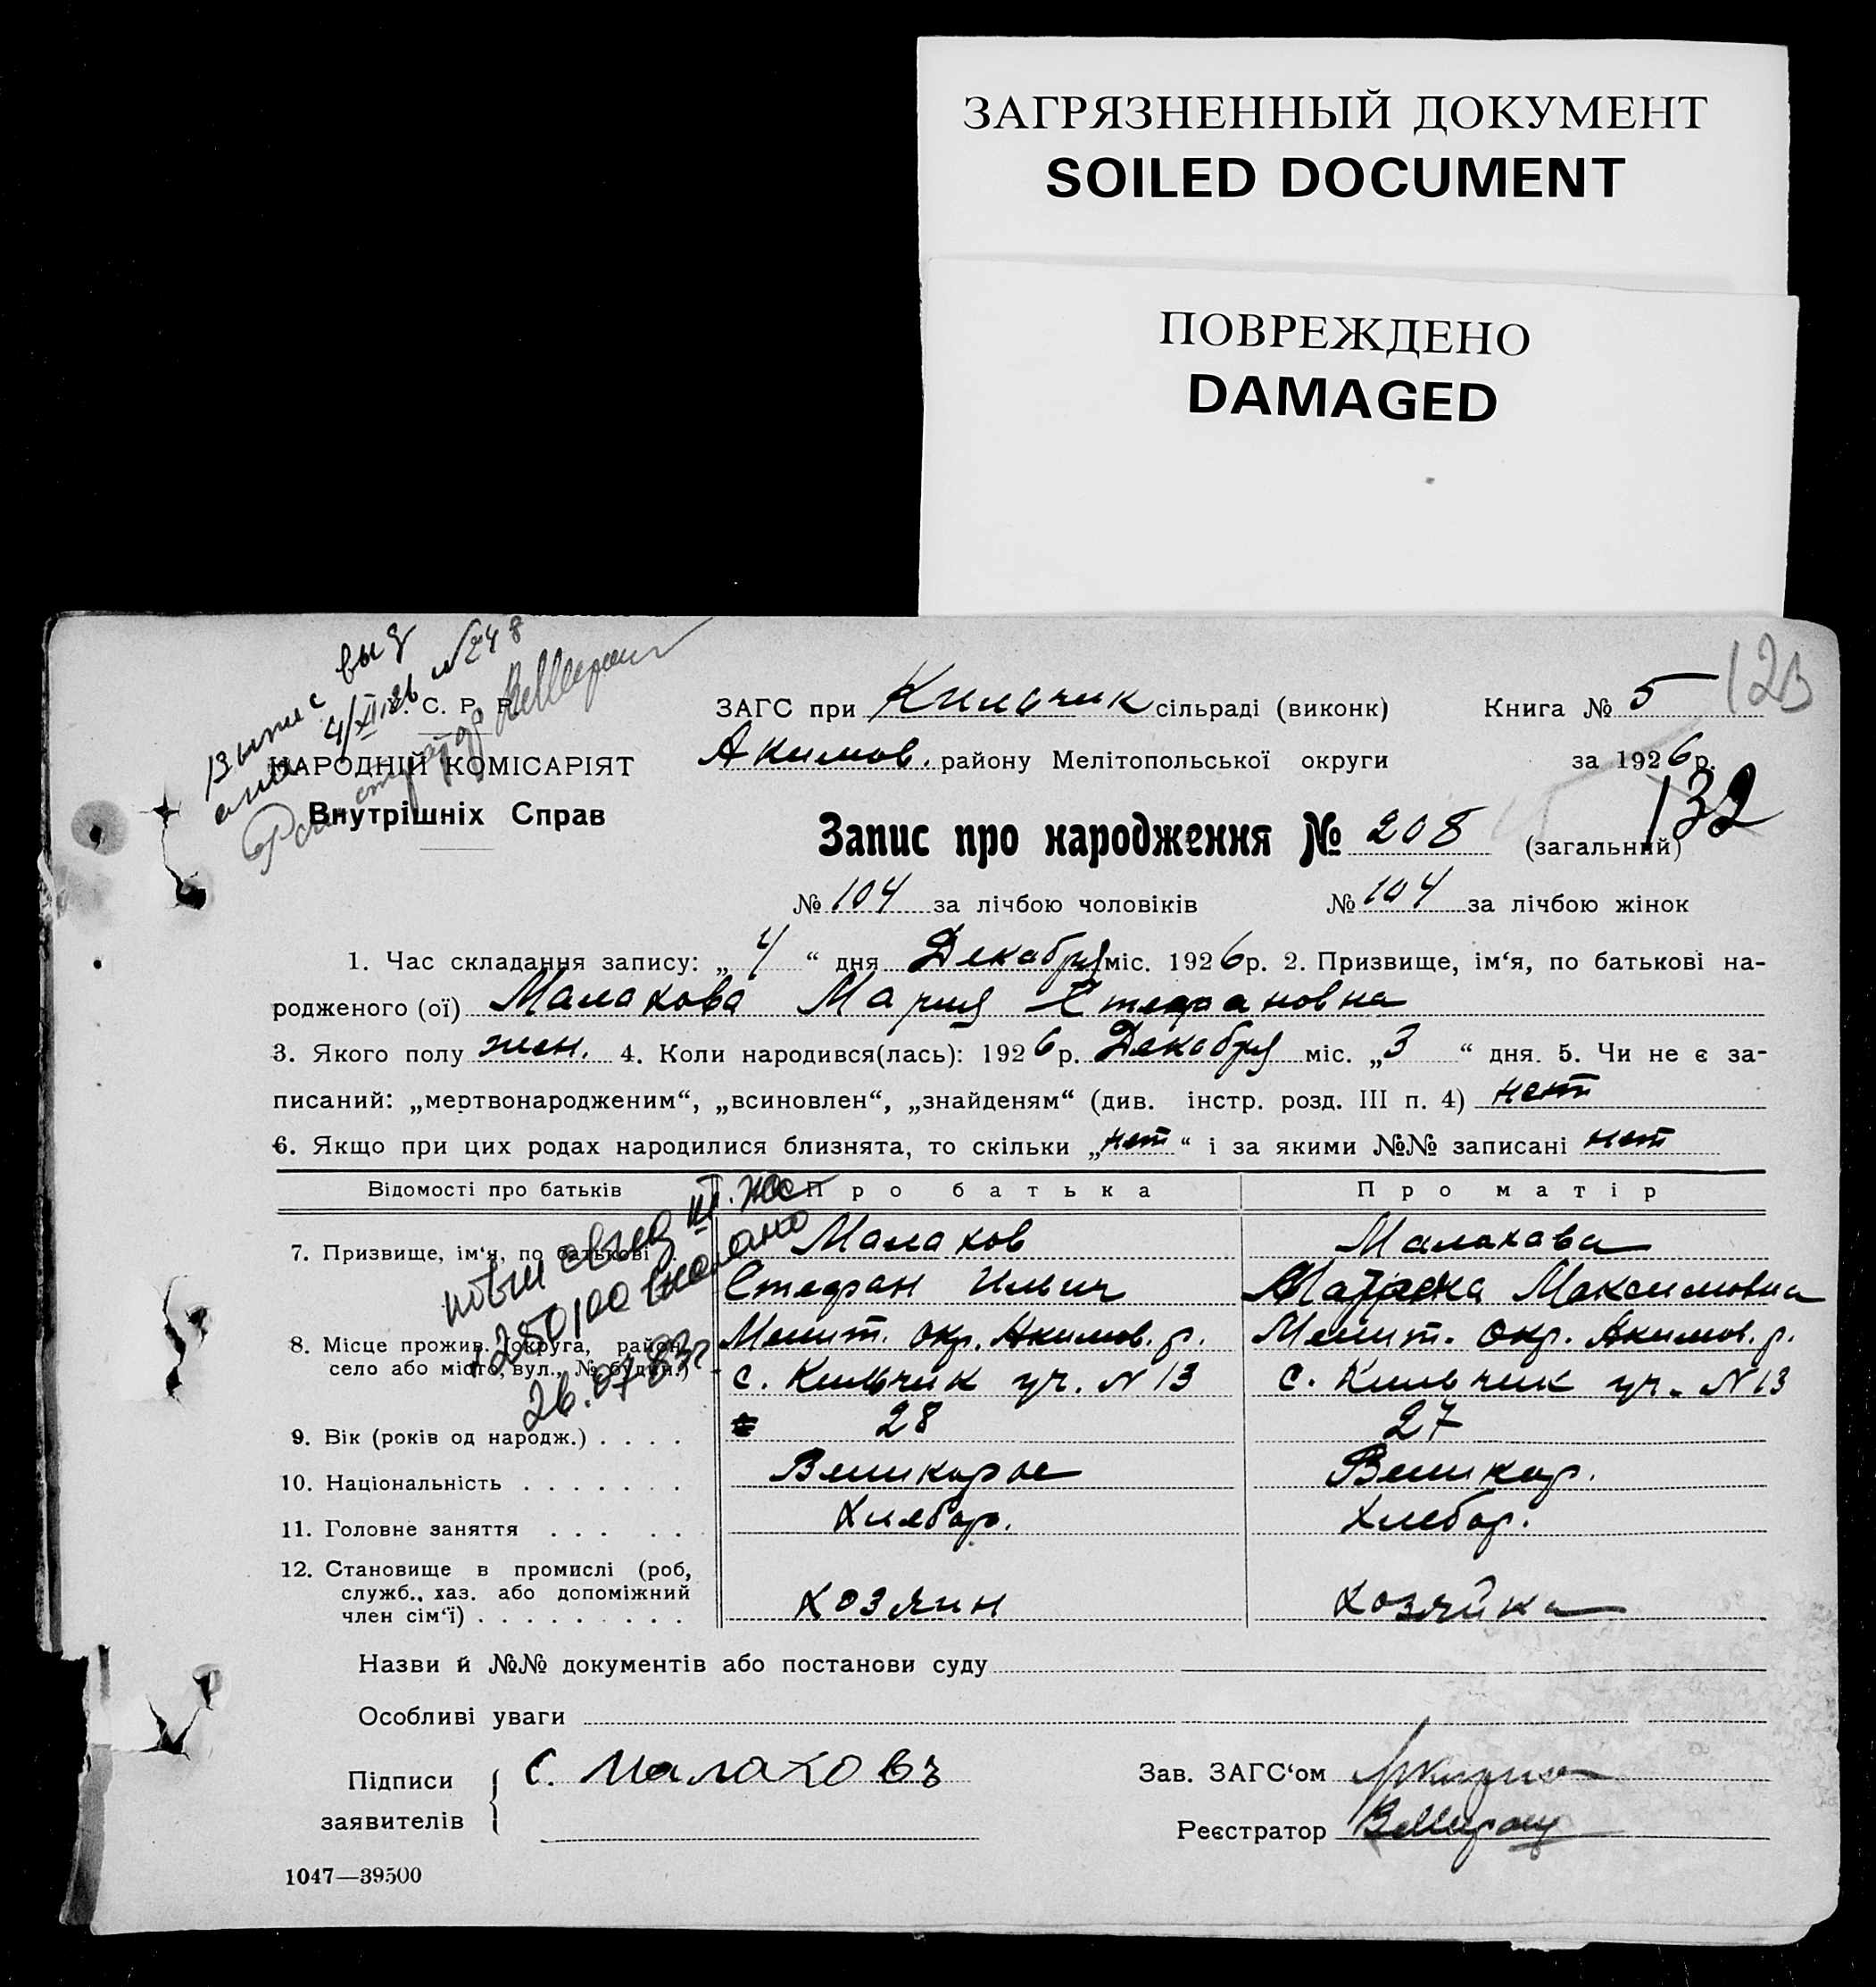 ЗАГРЯЗНЕННЫЙ ДОКУМЕНТ
SOILED DOCUMENT
ПОВРЕЖДЕНО
DAMAGED
выд
4/XII 26 №248
С. Р. Р.
НАРОДНІЙ КОМІСАРІЯТ
Внутрішніх Справ
ЗАГС при Кильчик сільраді (виконк) Книга № 5 123
Акимов. району Мелітопольської округи за 1926 р.
132
Запис про народження № 208 (загальний)
№ 104 за лічбою чоловіків № 104 за лічбою жінок
1. Час складання запису: „4“ дня Декабря міс. 1926 р. 2. Призвище, ім‘я, по батькові на-
родженого (ої) Малахова Мария Стефановна
3. Якого полу жен. 4. Коли народився(лась): 1926 р. Декабря міс. „3“ дня. 5. Чи не є за-
писаний: „мертвонародженим“, „всиновлен“, „знайденям“ (див. інстр. розд. III п. 4) нет
6. Якщо при цих родах народилися близнята, то скільки „нет“ і за якими №№ записані нет
Відомості про батьків Про батька Про матір
7. Призвище, ім‘я, по батькові Малахов Малахава
Стефан Ильич Максимовна
8. Місце прожив. (округа, район, Мелит. окр. Акимов. р. Мелит. окр. Акимов. р.
село або місто, вул., № будин.) с. Кильчик уч. N 13 с. Кильчик уч. N 13
26.07.83г
9. Вік (років од народж.) . . . . 28 27
10. Національність . . . . . . . Великорос Великор.
11. Головне заняття . . . . . Хлебор. Хлебор.
12. Становище в промислі (роб,
служб., хаз. або допоміжний
член сім‘ї) . . . . . . . . . хозяин хозяйка
Назви й №№ документів або постанови суду
Особливі уваги
Підписи заявителів { С. Малаховъ
Зав. ЗАГС‘ом
Реєстратор
1047—39500